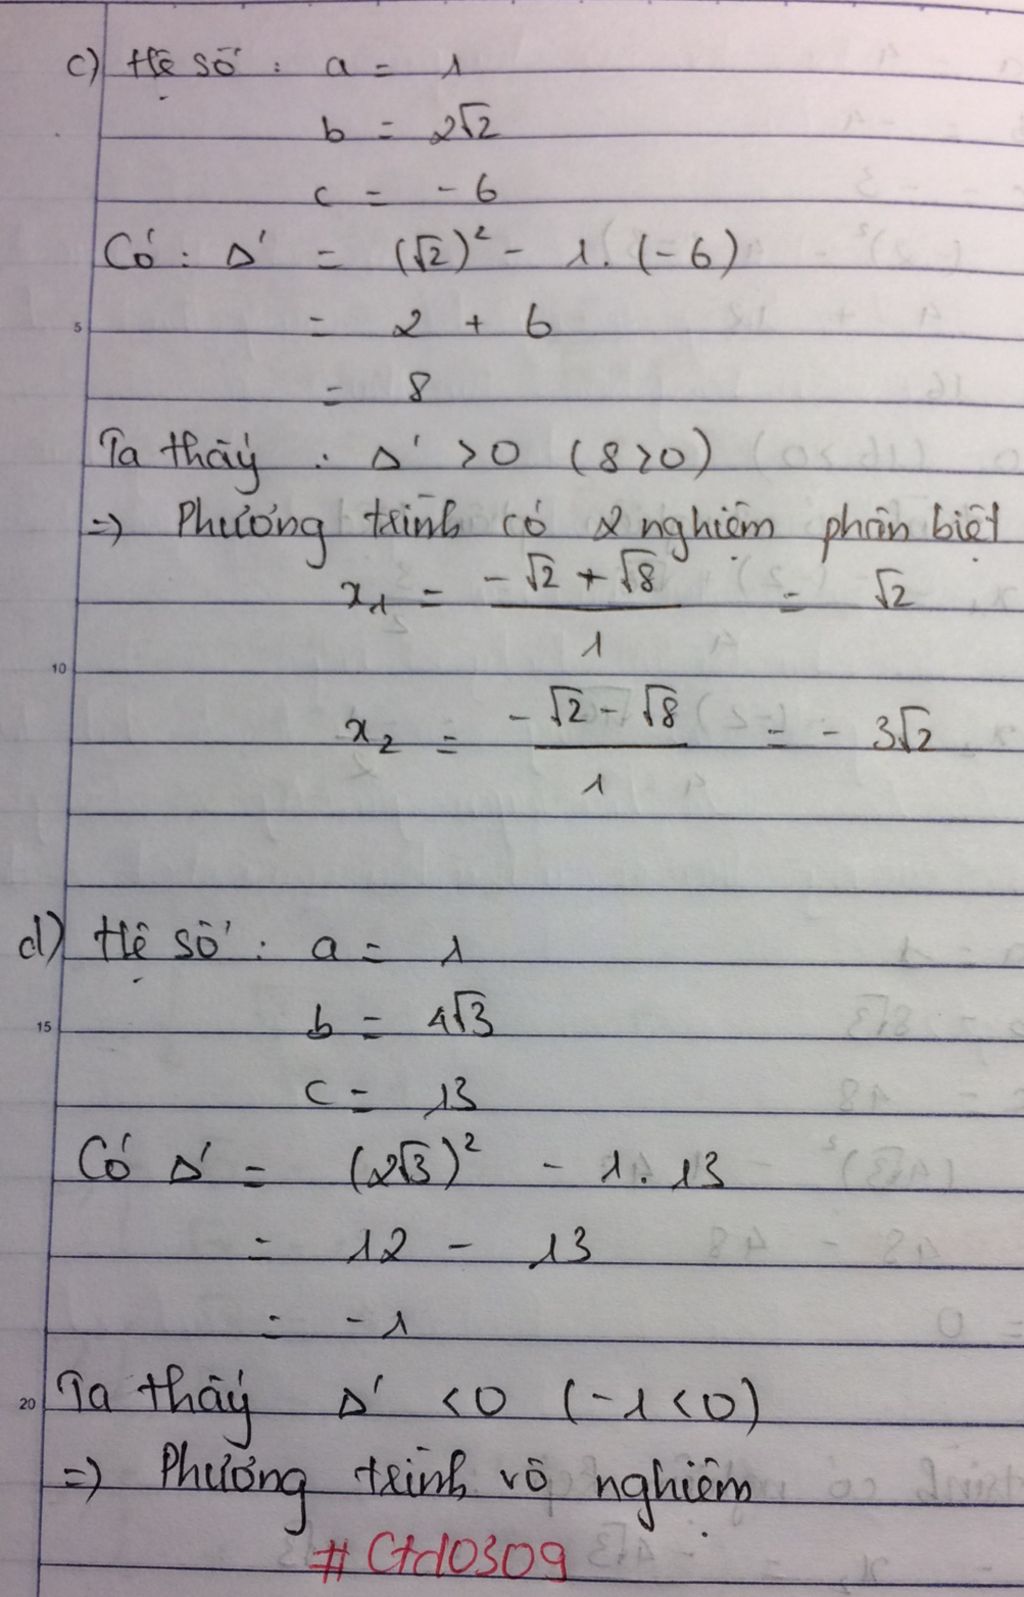 c) Hệ số : a = 1
b = 2√2
c = -6
Có : Δ' = (√2)² - 1. (-6)
5
= 2 + 6
= 8
Ta thấy : Δ' >0 (8>0)
=> Phương trình có 2 nghiệm phân biệt
x₁ = (-√2 + √8)/1 = √2
10
x₂ = (-√2 - √8)/1 = - 3√2
d) Hệ số : a = 1
15
b = 4√3
c = 13
Có Δ' = (2√3)² - 1. 13
= 12 - 13
= -1
20
Ta thấy Δ' <0 (-1<0)
=> Phương trình vô nghiệm
# Ctd0309